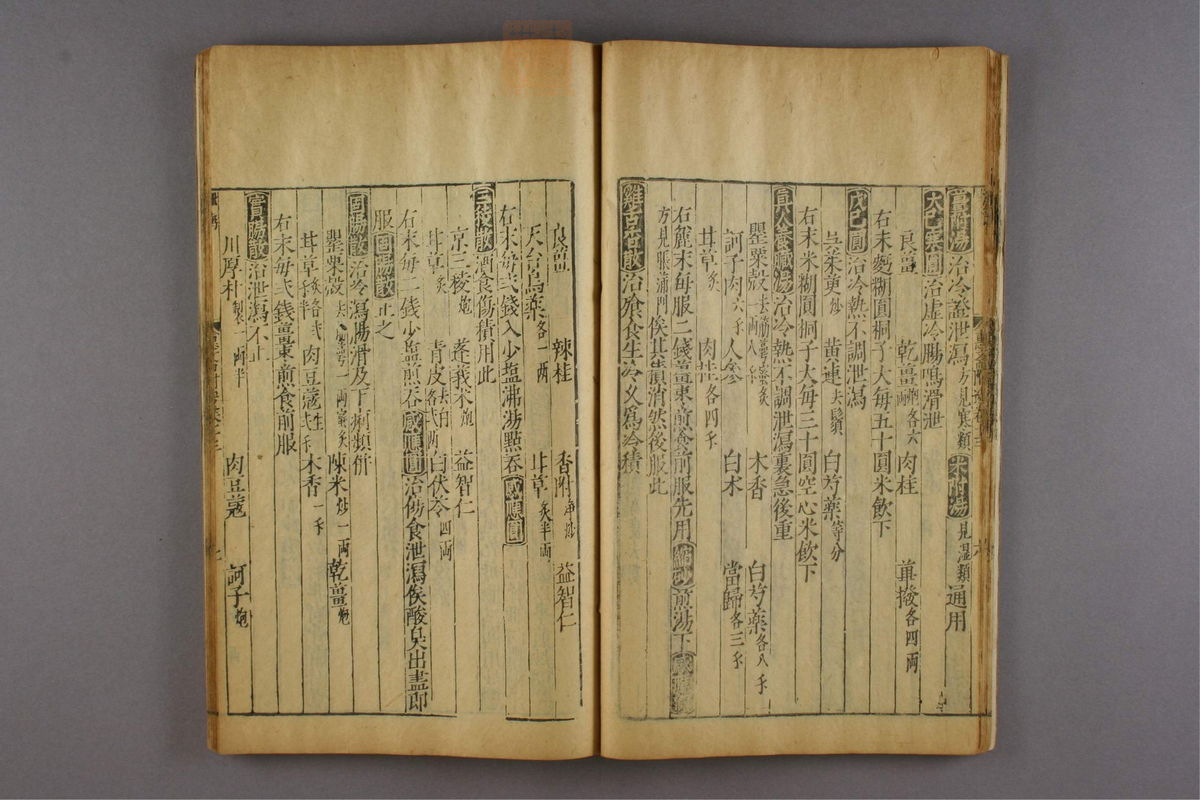 附湯治冷證泄瀉方見寒類 朮附湯見濕類通用
大已寒圓治虛冷腸鳴滑泄
良薑 乾薑各六兩 肉桂 蓽撥各四兩
右末麪糊圓桐子大每五十圓米飲下
戊已圓治冷熱不調泄瀉
吳茱萸炒 黃連去鬚 白芍藥等分
右末米糊圓桐子大每三十圓空心米飲下
真人養臟湯治冷熱不調泄瀉裏急後重
罌粟殼去筋蒂蜜炙一兩八 木香 白芍藥各八
訶子肉六 人參 白朮 當歸各三
甘草炙 肉桂各四
右麄末每服二錢薑棗煎食前服先用縮砂煎湯下感應
方見脹滿門俟其積消然後服此
雞舌香散治飱食生冷久為冷積
良薑 辣桂 香附淨炒 益智仁
天台烏藥各一兩 甘草炙半兩
右末每弍錢入少塩沸湯點吞感應圓
三稜散酒食傷積用此
京三稜炮 蓬莪朮炮 益智仁
甘草炙 青皮去白各弍兩 白茯苓四兩
右末每二錢少塩煎吞感應圓治傷食泄瀉俟酸臭出盡即
服固腸散止之
固腸散治冷瀉腸滑及下痢類併
罌粟殼去一兩蜜炙 陳米炒一兩 乾薑炮
甘草炙各弍 肉豆蔻生弍 木香一
右末每弍錢薑棗煎食前服
實腸散治泄瀉不止
川厚朴製一兩半 肉豆蔻 訶子炮